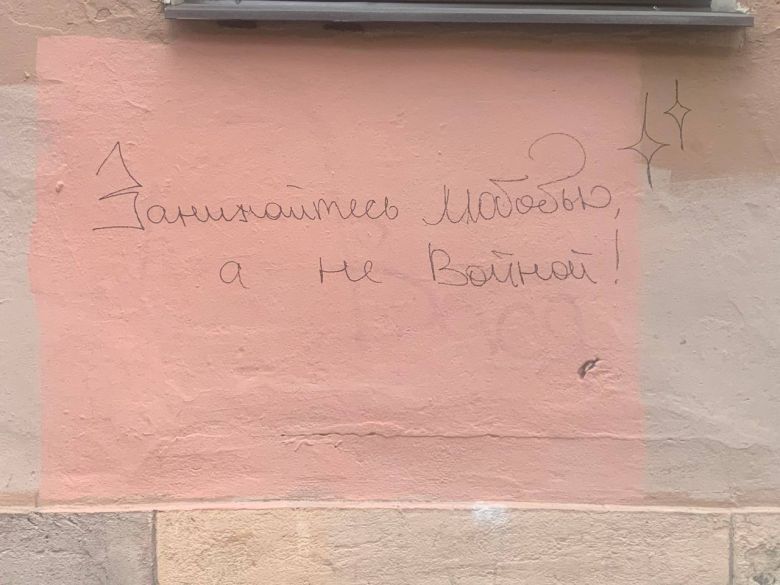 Занимайтесь Любовью,
а не Войной!